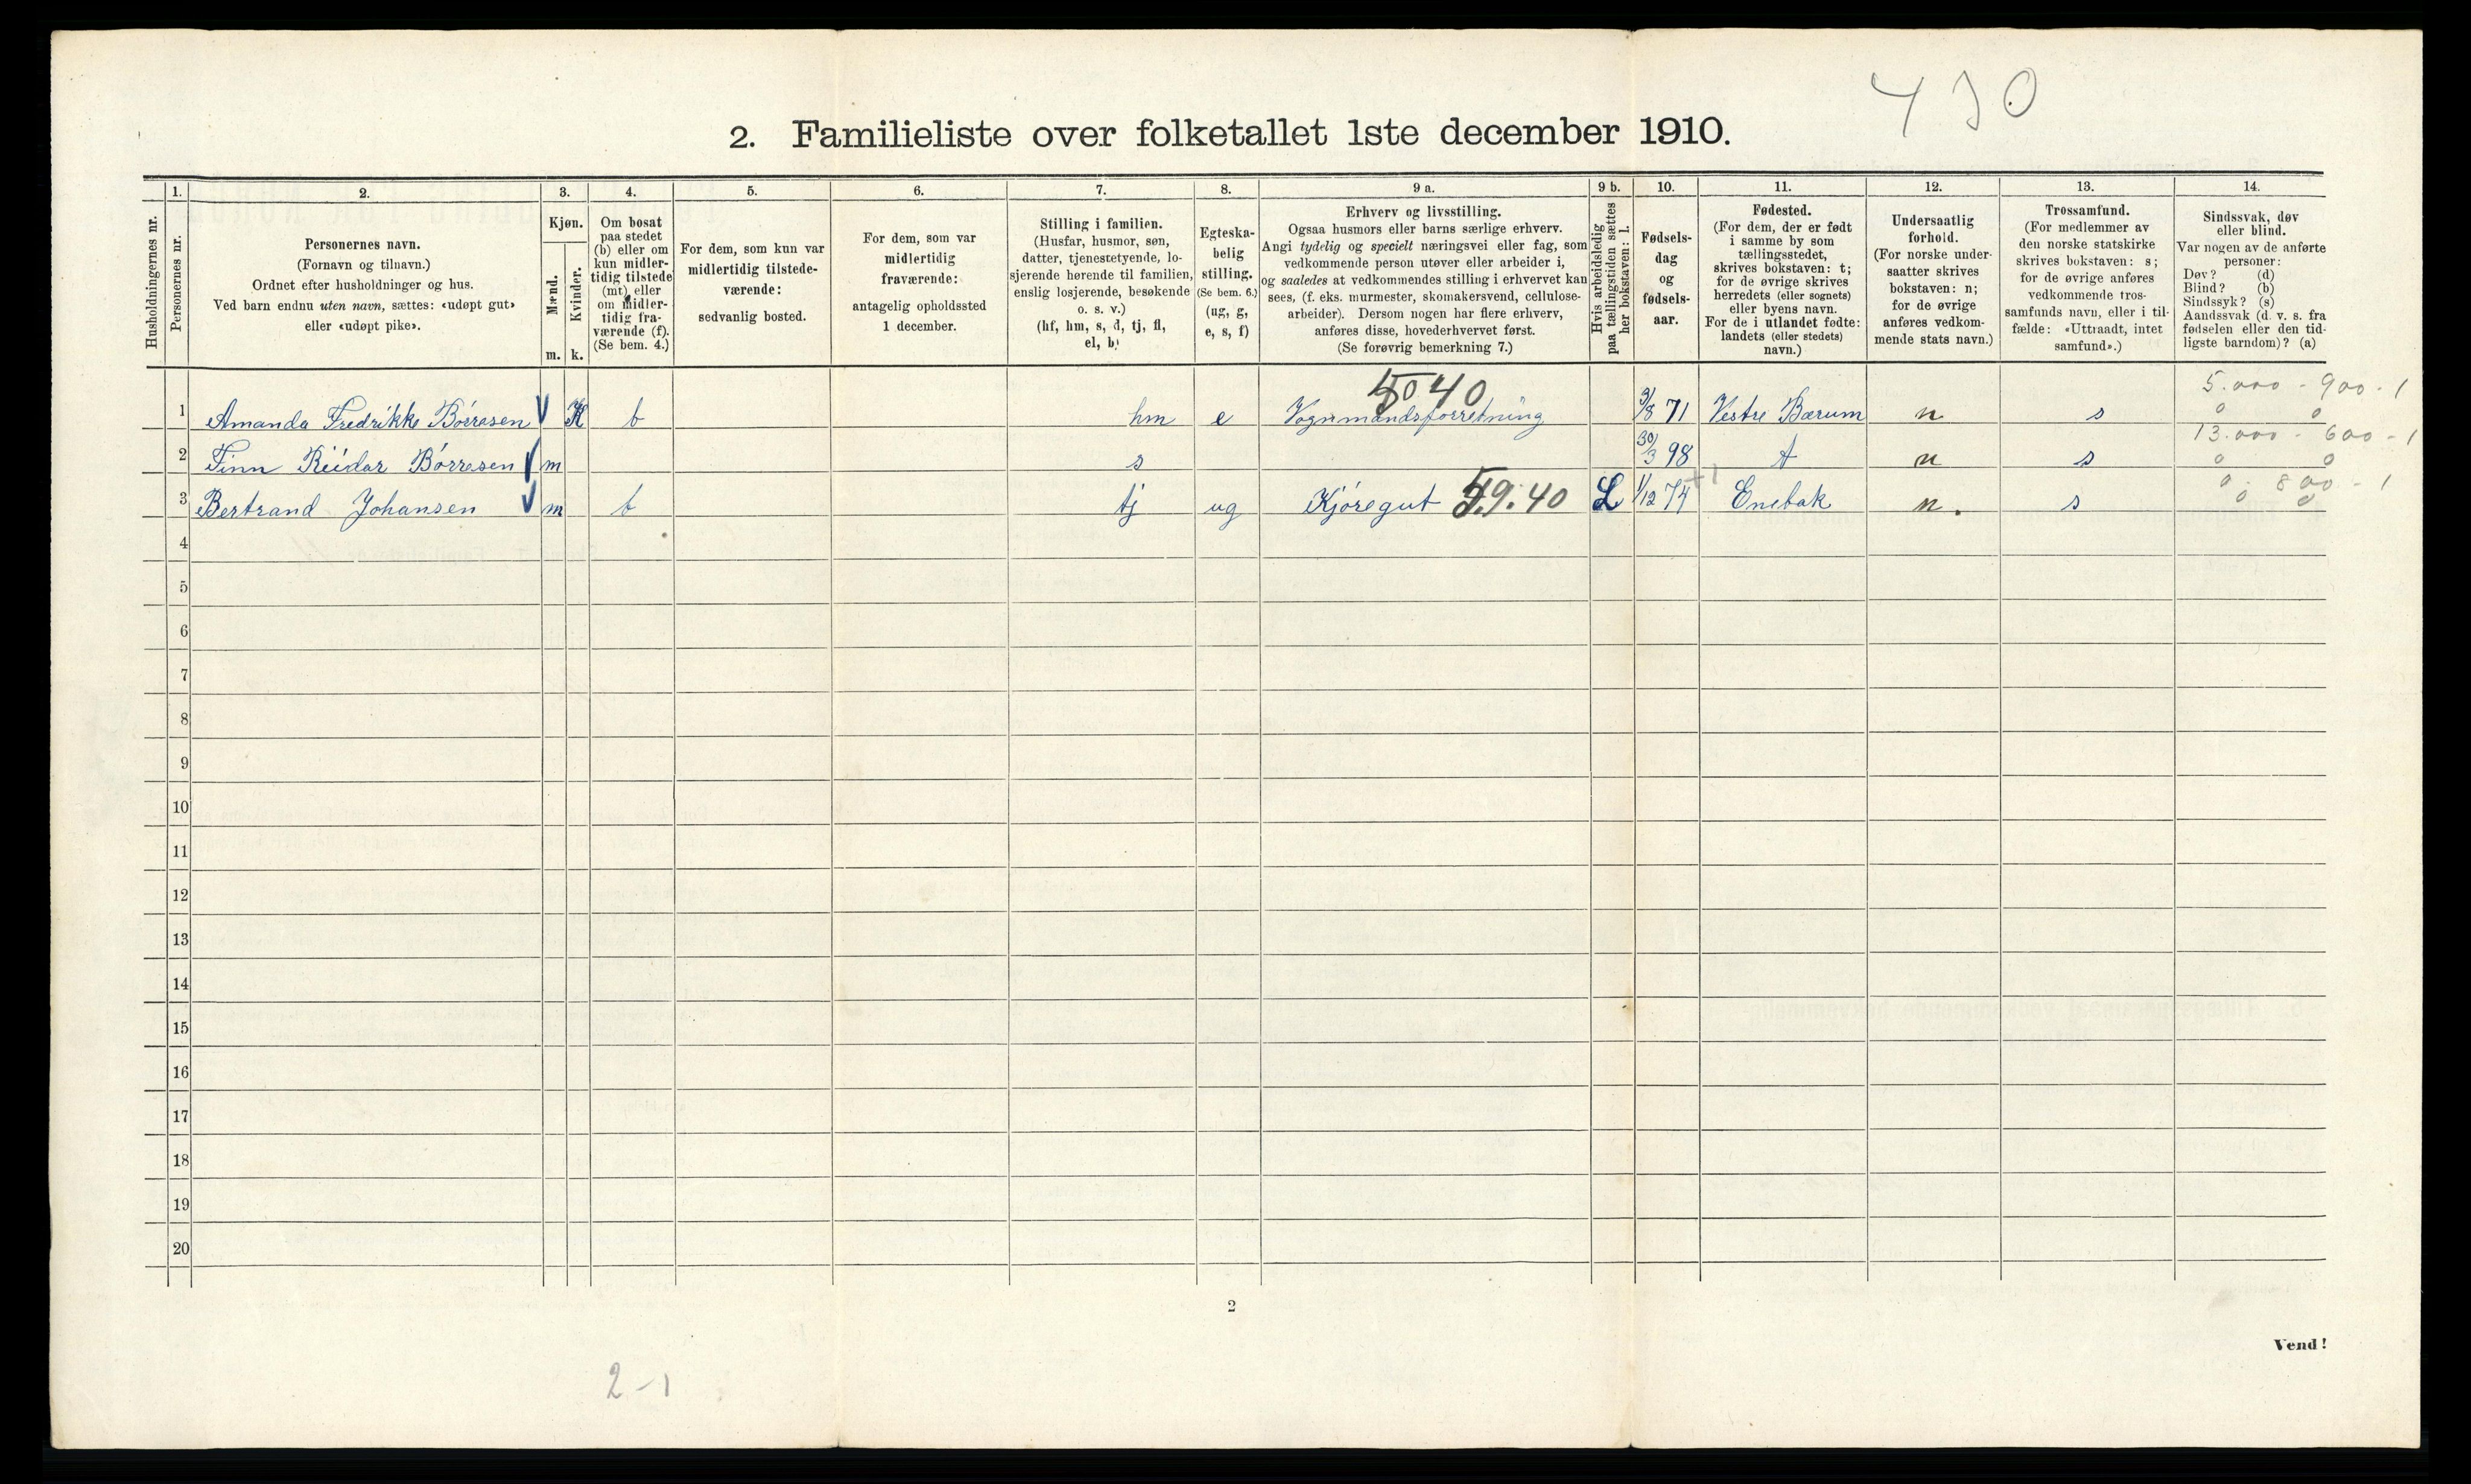 430
2. Familieliste over folketallet 1ste december 1910.
Husholdningernes nr.
1.
Personernes nr.
2.
Personernes navn.
(Fornavn og tilnavn.)
Ordnet efter husholdninger og hus.
Ved barn endnu uten navn, sættes: «udøpt gut»
eller «udøpt pike».
3.
Kjøn.
Mænd.
Kvinder.
m. k.
4.
Om bosat
paa stedet
(b) eller om
kun midler-
tidig tilstede
(mt) eller
om midler-
tidig fra-
værende (f).
(Se bem. 4.)
5.
For dem, som kun var
midlertidig tilstede-
værende:
sedvanlig bosted.
6.
For dem, som var
midlertidig
fraværende:
antagelig opholdssted
1 december.
7.
Stilling i familien.
(Husfar, husmor, søn,
datter, tjenestetyende, lo-
sjerende hørende til familien,
enslig losjerende, besøkende
o. s. v.)
(hf, hm, s, d, tj, fl,
el, b)
8.
Egteska-
belig
stilling.
(Se bem. 6.)
(ug, g,
e, s, f)
9 a.
Erhverv og livsstilling.
Ogsaa husmors eller barns særlige erhverv.
Angi tydelig og specielt næringsvei eller fag, som
vedkommende person utøver eller arbeider i,
og saaledes at vedkommendes stilling i erhvervet kan
sees, (f. eks. murmester, skomakersvend, cellulose-
arbeider). Dersom nogen har flere erhverv,
anføres disse, hovederhvervet først.
(Se forøvrig bemerkning 7.)
9 b.
Hvis arbeidsledig
paa tællingstiden sættes
her bokstaven: l.
10.
Fødsels-
dag
og
fødsels-
aar.
11.
Fødested.
(For dem, der er født
i samme by som
tællingsstedet,
skrives bokstaven: t;
for de øvrige skrives
herredets (eller sognets)
eller byens navn.
For de i utlandet fødte:
landets (eller stedets)
navn.)
12.
Undersaatlig
forhold.
(For norske under-
saatter skrives
bokstaven: n;
for de øvrige
anføres vedkom-
mende stats navn.)
13.
Trossamfund.
(For medlemmer av
den norske statskirke
skrives bokstaven: s;
for de øvrige anføres
vedkommende tros-
samfunds navn, eller i til-
fælde: «Uttraadt, intet
samfund».)
14.
Sindssvak, døv
eller blind.
Var nogen av de anførte
personer:
Døv? (d)
Blind? (b)
Sindssyk? (s)
Aandssvak (d. v. s. fra
fødselen eller den tid-
ligste barndom)? (a)
5040 5.000 - 900 - 1
1 Amanda Fredrikke Börresen K b hm e Vognmandsforretning 3/8 71 Vestre Bærum n s 0 0
13.000 - 600 - 1
2 Finn Reidar Börresen m s 30/3 98 t n s 0 0
0. 800 - 1
3 Bertrand Johansen m b tj ug Kjöregut 59.40 L 1/12 74 +1 Enebak n. s 0 0
4
5
6
7
8
9
10
11
12
13
14
15
16
17
18
19
20
2
Vend!
2-1